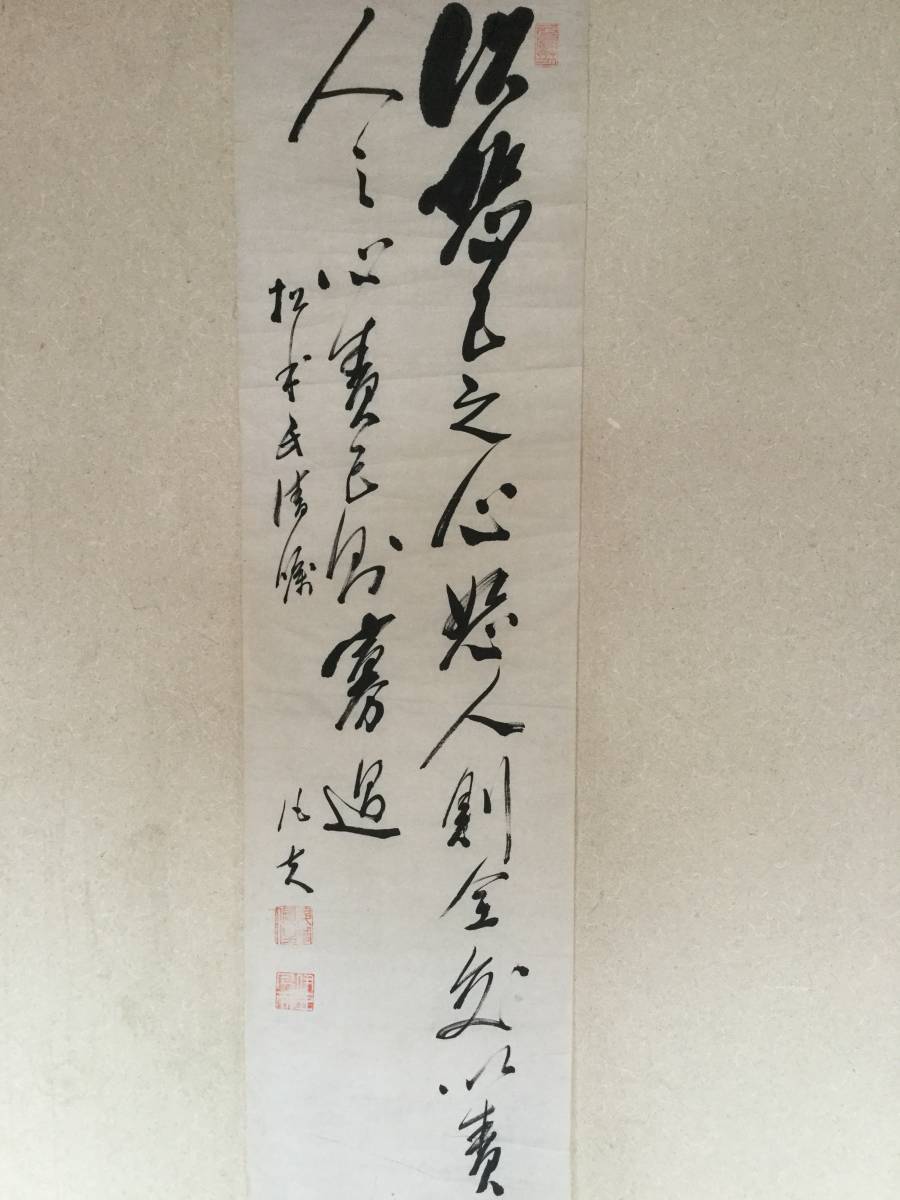 以恕己之心恕人則全交以責
人之心責己則寡過
松本氏清嘱